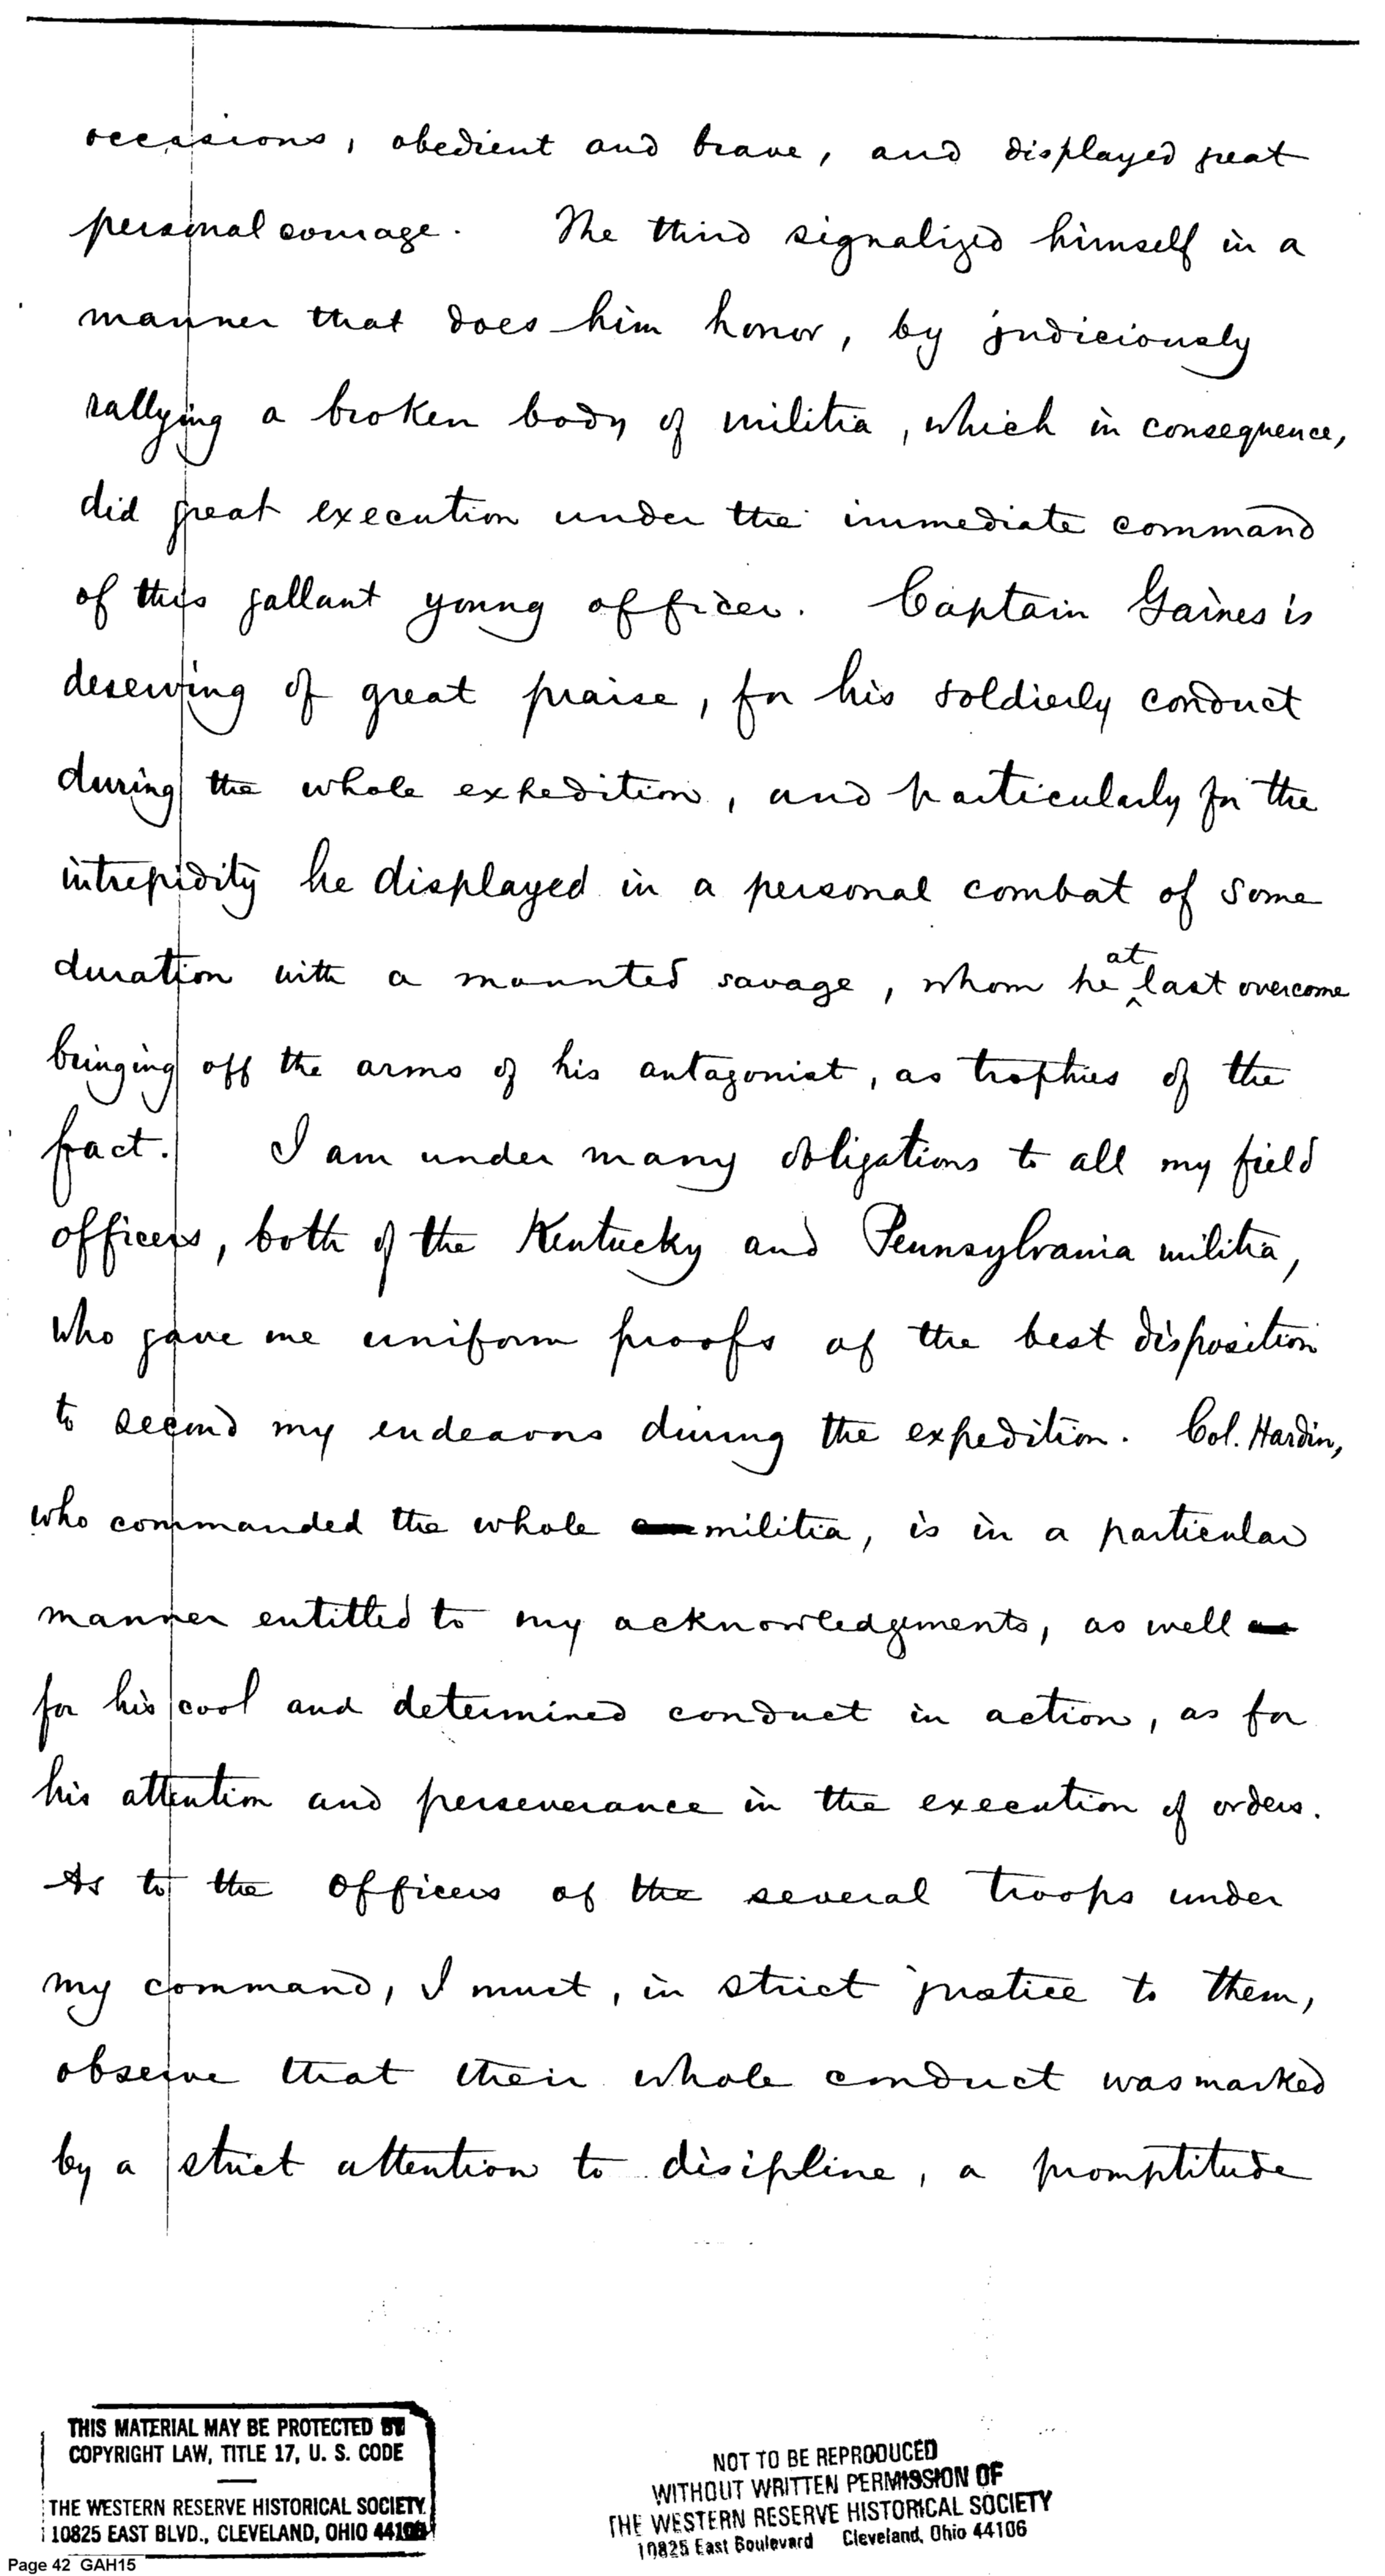 occasions, obedient and brave, and displayed great
personal courage. The third signalized himself in a
manner that does him honor, by judiciously
rallying a broken body of militia, which in consequence,
did great execution under the immediate command
of this gallant young officer. Captain Gaines is
deserving of great praise, for his soldierly conduct
during the whole expedition, and particularly for the
intrepidity he displayed in a personal combat of some
duration with a mounted savage, whom he at last overcome
bringing off the arms of his antagonist, as trophies of the
fact. I am under many obligations to all my field
officers, both of the Kentucky and Pennsylvania militia,
who gave me uniform proofs of the best disposition
to second my endeavors during the expedition. Col. Hardin,
who commanded the whole militia, is in a particular
manner entitled to my acknowledgments, as well
for his cool and determined conduct in action, as for
his attention and perseverance in the execution of orders.
As to the officers of the several troops under
my command, I must, in strict justice to them,
observe that their whole conduct was marked
by a strict attention to discipline, a promptitude
THIS MATERIAL MAY BE PROTECTED BY
COPYRIGHT LAW, TITLE 17, U. S. CODE
THE WESTERN RESERVE HISTORICAL SOCIETY
10825 EAST BLVD., CLEVELAND, OHIO 44106
NOT TO BE REPRODUCED
WITHOUT WRITTEN PERMISSION OF
THE WESTERN RESERVE HISTORICAL SOCIETY
10825 East Boulevard Cleveland, Ohio 44106
Page 42 GAH15